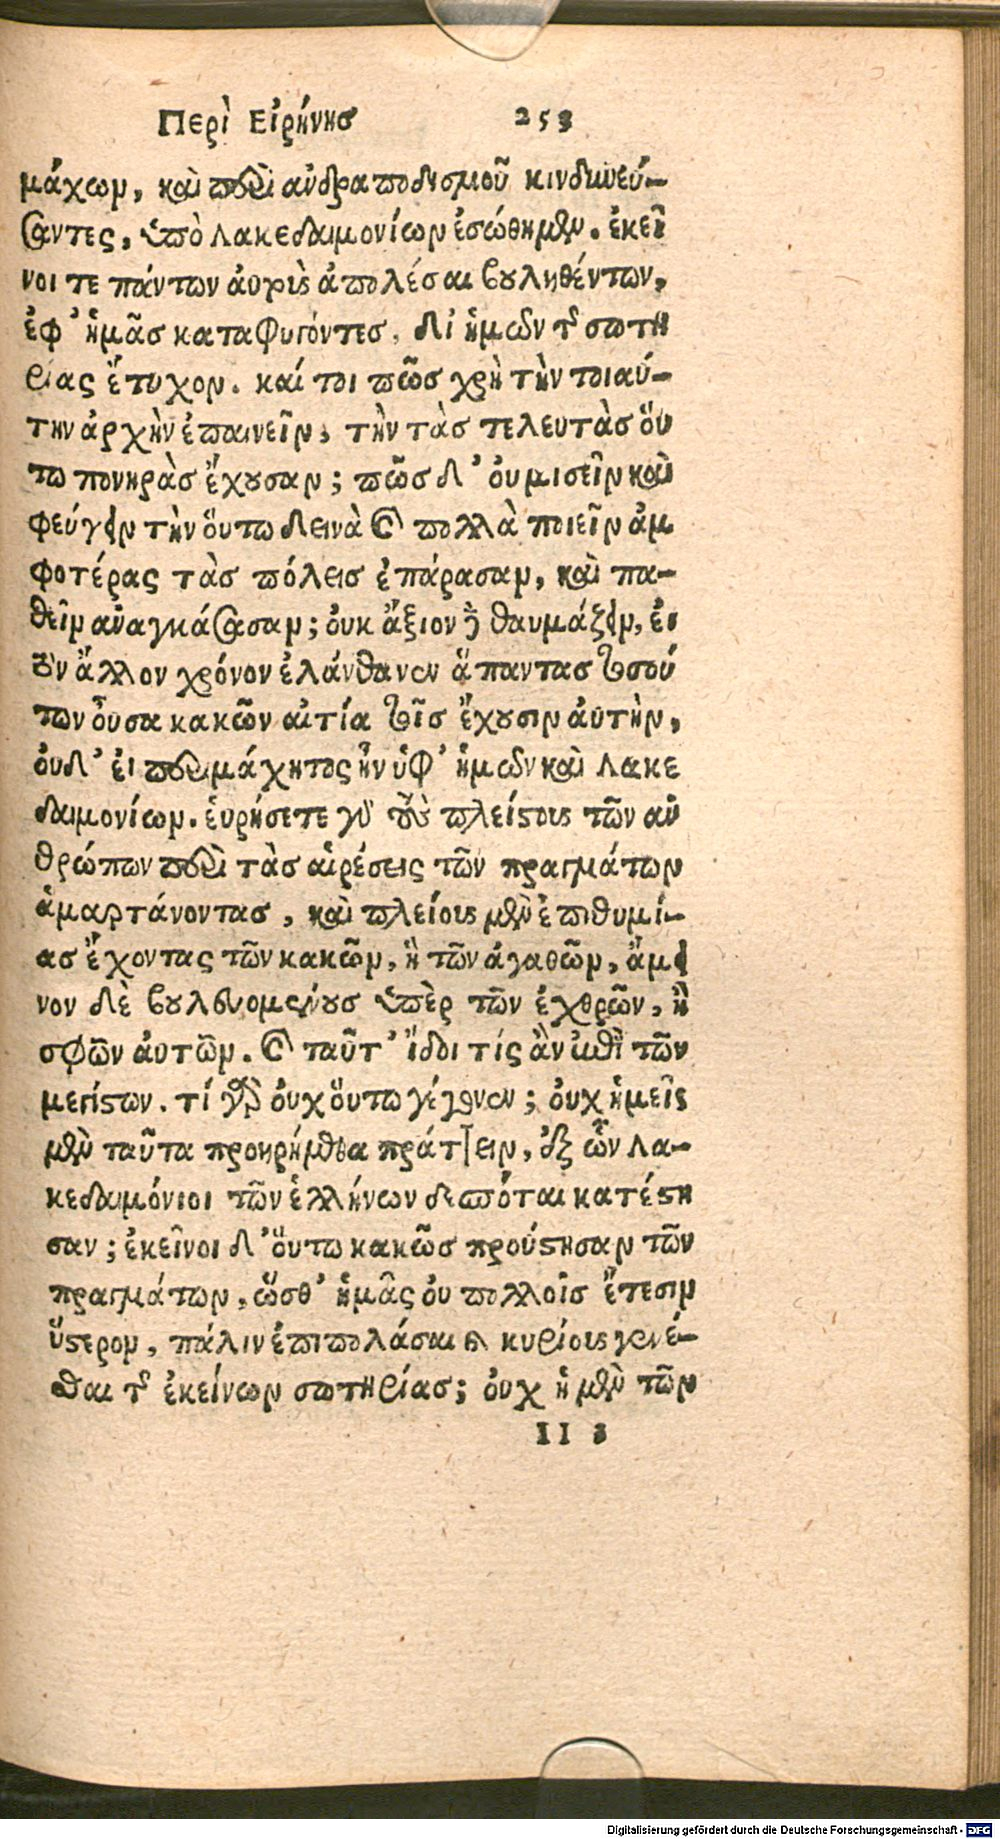 Περὶ Εἰρήνης 253
μάχων, καὶ περὶ ἀνδραποδισμοῦ κινδυνεύ-
σαντες, ὑπὸ Λακεδαιμονίων ἐσώθημεν. ἐκεῖ
νοί τε πάντων αὐτοὺς ἀπολέσαι βουληθέντων,
ἐφ' ἡμᾶς καταφυγόντες, δι' ἡμῶν τῆς σωτη
ρίας ἔτυχον. καί τοι πῶς χρὴ τὴν τοιαύ-
την ἀρχὴν ἐπαινεῖν, τὴν τὰς τελευτὰς οὕ
τω πονηρὰς ἔχουσαν; πῶς δ' οὐ μισεῖν καὶ
φεύγειν τὴν οὕτω δεινὰ καὶ πολλὰ ποιεῖν ἀμ
φοτέρας τὰς πόλεις ἐπάρασαν, καὶ πα-
θεῖν ἀναγκάσασαν; οὐκ ἄξιον δὲ θαυμάζειν, εἰ
τὸν ἄλλον χρόνον ἐλάνθανεν ἅπαντας τοσού
των οὖσα κακῶν αἰτία τοῖς ἔχουσιν αὐτὴν,
οὐδ' εἰ περιμάχητος ἦν ὑφ' ἡμῶν καὶ Λακε
δαιμονίων. εὑρήσετε γὰρ τοὺς πλείστους τῶν ἀν
θρώπων περὶ τὰς αἱρέσεις τῶν πραγμάτων
ἁμαρτάνοντας, καὶ πλείους μὲν ἐπιθυμί-
ας ἔχοντας τῶν κακῶν, ἢ τῶν ἀγαθῶν, ἄμει
νον δὲ βουλευομένους ὑπὲρ τῶν ἐχθρῶν, ἢ
σφῶν αὐτῶν. καὶ ταῦτ' ἴδοι τίς ἂν ἐπὶ τῶν
μεγίστων. τί γὰρ οὐχ οὕτω γέγονεν; οὐχ ἡμεῖς
μὲν ταῦτα προῃρήμεθα πράττειν, ἐξ ὧν Λα-
κεδαιμόνιοι τῶν ἑλλήνων δεσπόται κατέστη
σαν; ἐκεῖνοι δ' οὕτω κακῶς προύστησαν τῶν
πραγμάτων, ὥσθ' ἡμᾶς οὐ πολλοῖς ἔτεσιν
ὕστερον, πάλιν ἐπιπολάσαι καὶ κυρίους γενέ-
σθαι τῆς ἐκείνων σωτηρίας; οὐχ ἡ μὲν τῶν
II 3
Digitalisierung gefördert durch die Deutsche Forschungsgemeinschaft - DFG